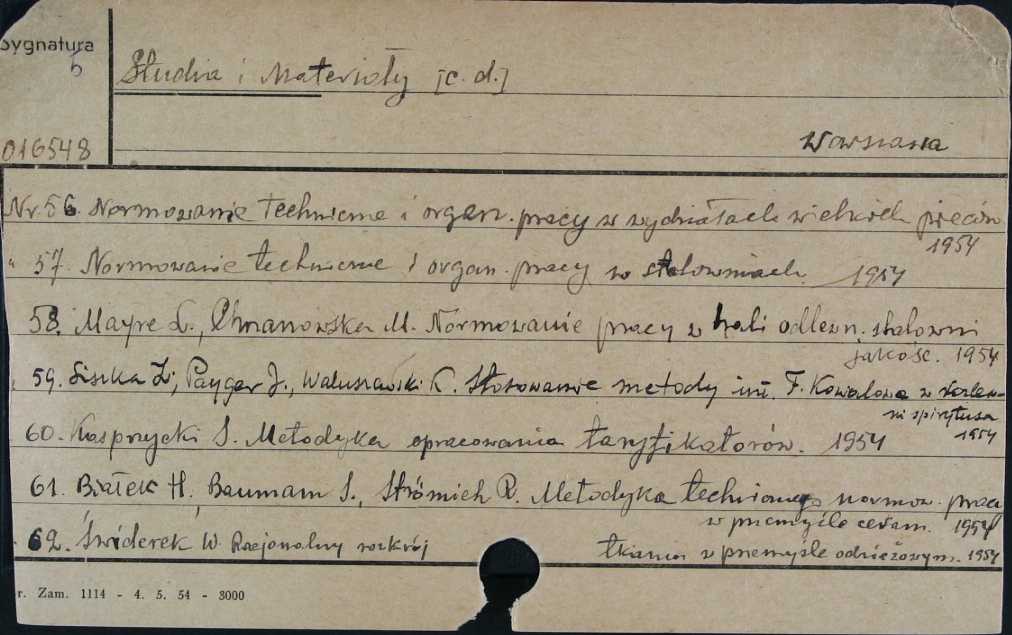 Sygnatura
5
Studia i Materiały [c. d.]
016548
Warszawa
Nr. 56. Normowanie techniczne i organ. pracy w wydziałach wielkich pieców
1954
" 57. Normowanie techniczne i organ. pracy w stalowniach. 1954
58. Mayre L., Chrzanowska M. Normowanie pracy w hali odlewn. stalowni
jakośc. 1954
59. Siszka Z., Paygar J., Waluszewski K. Stosowanie metody inż. F. Kowalowa w rozlew-
ni spirytusu
1954
60. Kasprzycki S. Metodyka opracowania taryfikatorów. 1954
61. Białek H., Baumam S., Strömich R. Metodyka technicznego normow. pracy
w przemyśle ceram. 1954
62. Świderek W. Racjonalny rozkrój tkanin w przemyśle odzieżowym. 1954
r. Zam. 1114 - 4. 5. 54 - 3000